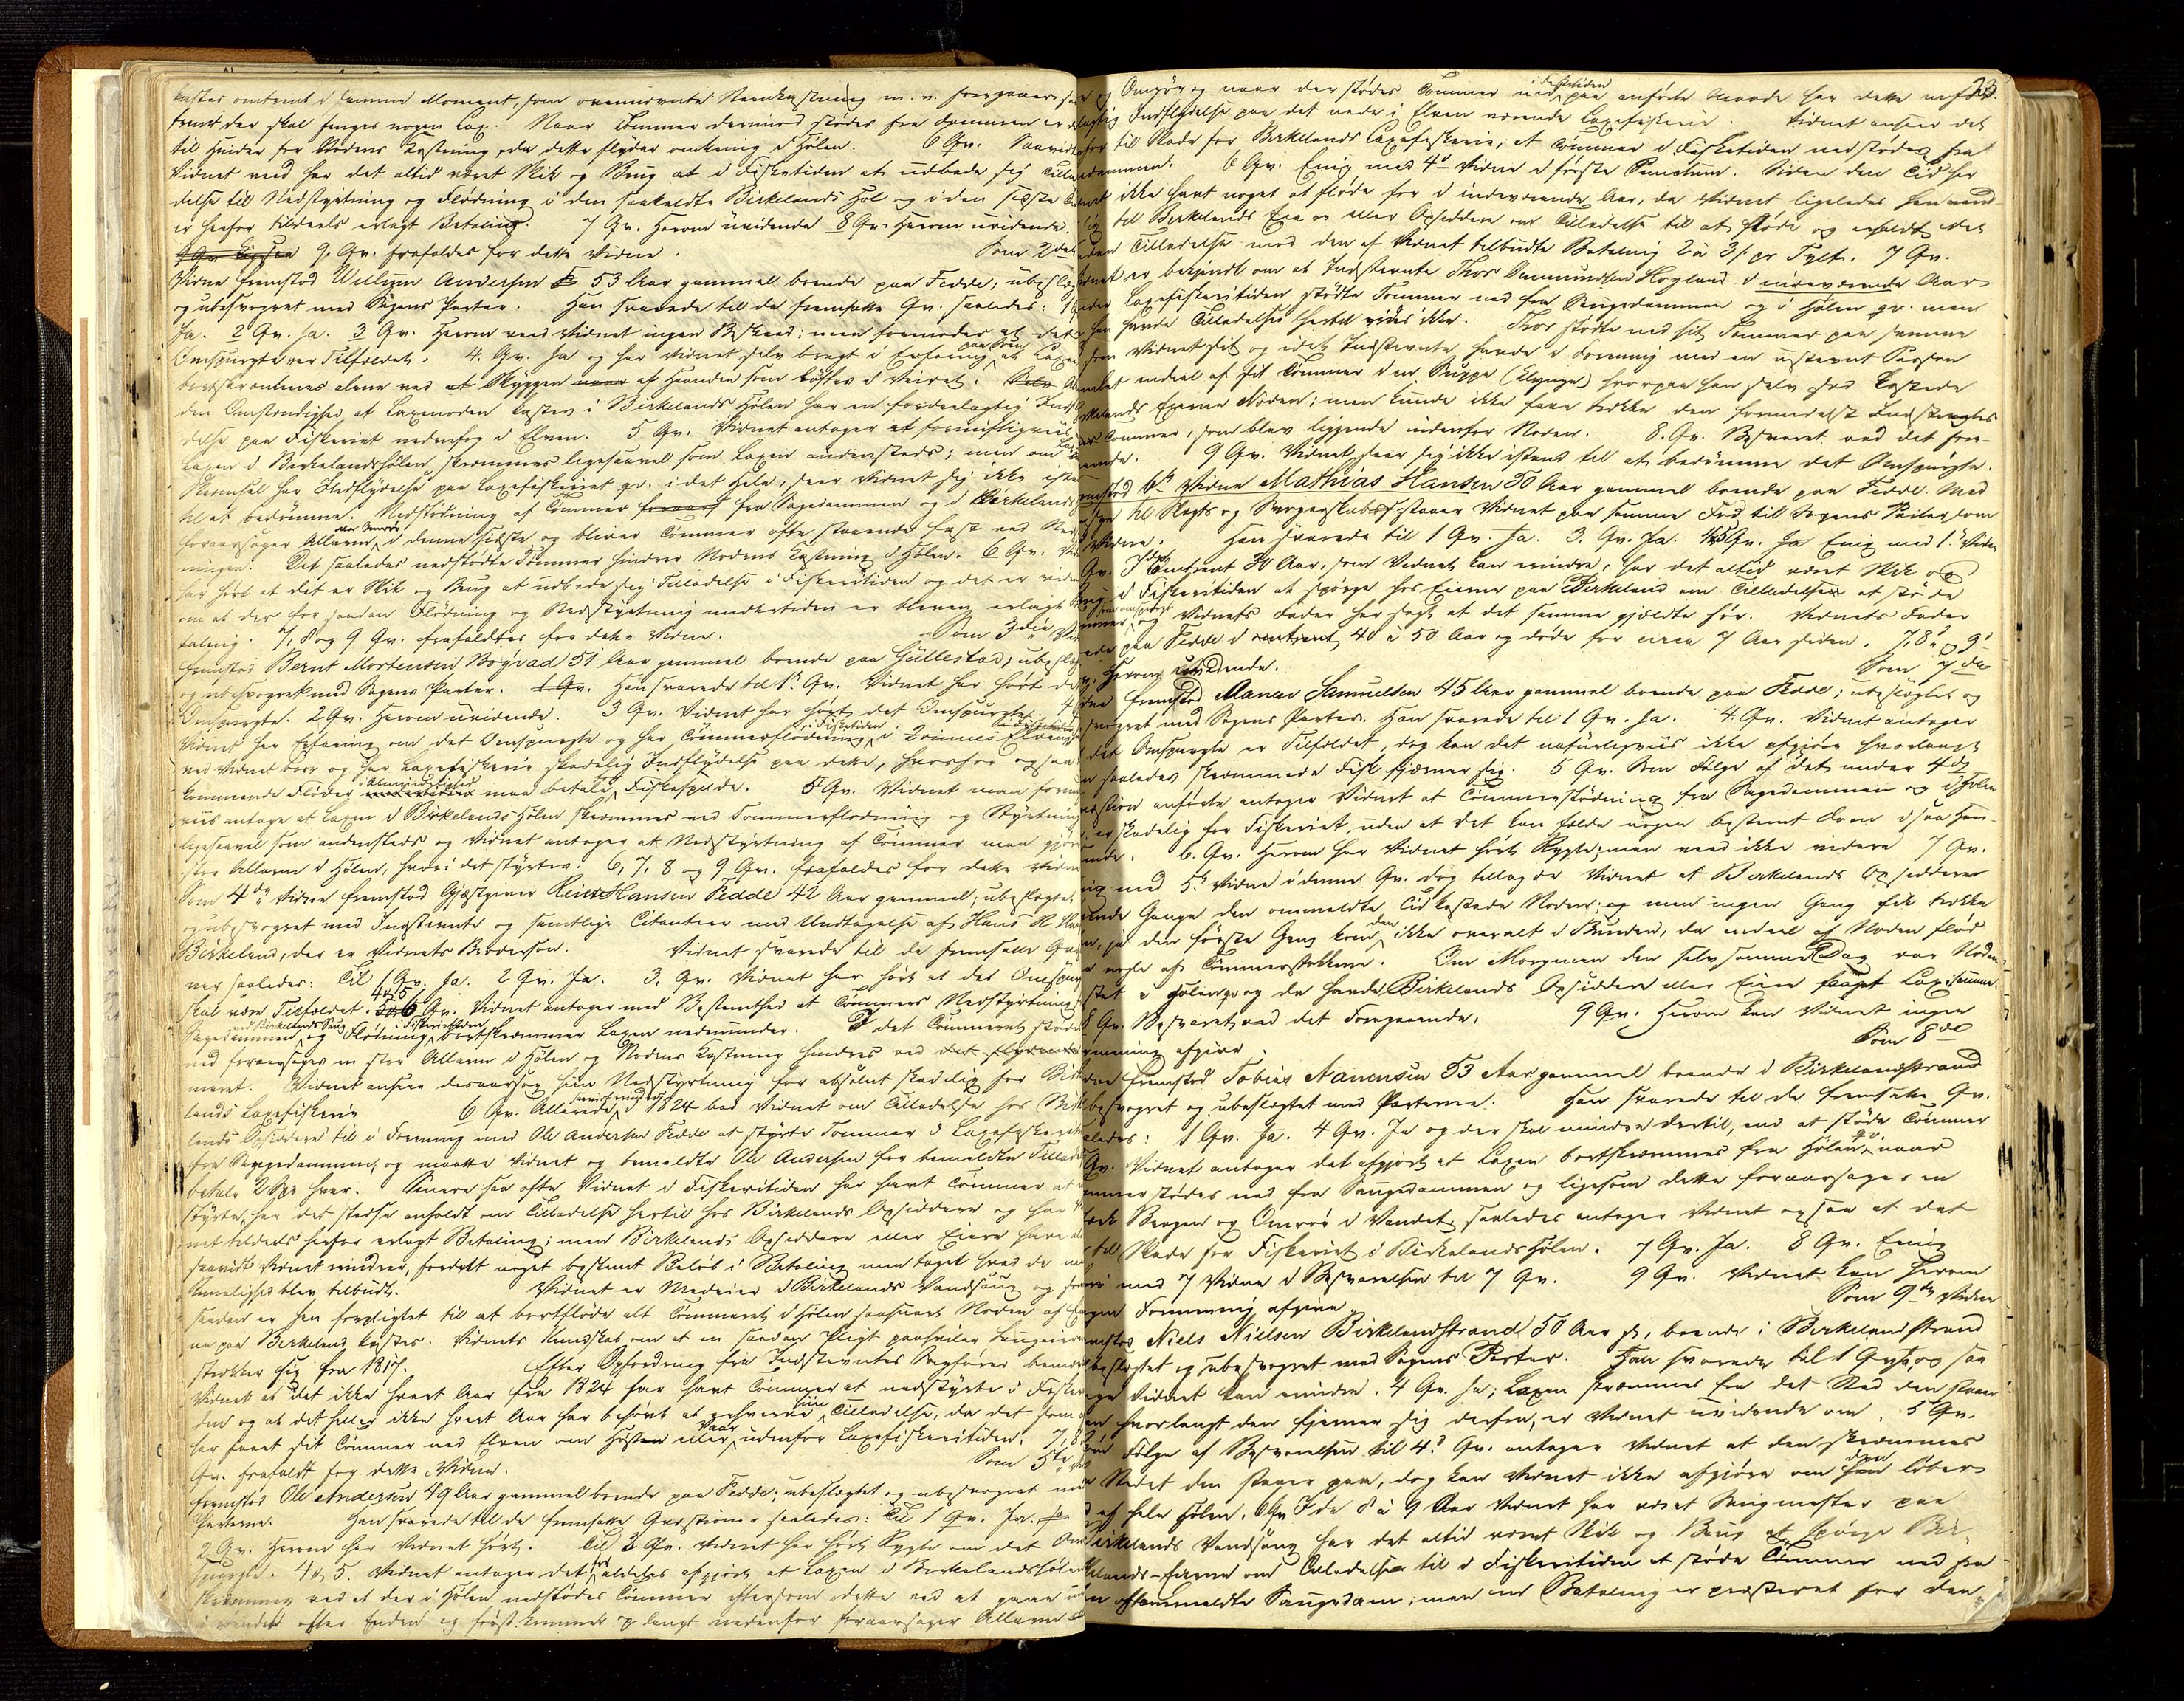 kastes omtrent i samme Moment, som ovennevnte Steenkastning m. v. foregaaer, saa
fremt der skal fanges nogen Lax. Naar Tømmer derimod stødes fra Dammen er det
til Hinder for Nodens Kastning, da dette flyder omkring i Hølen. 6 Qv. Saavidt
Vidnet veed har det altid været Skik og Brug at i Fisketiden at udbede sig Tilla
delse til Nedstyrtning og Flødning i den saakaldte Birkelands Høl og i den sidste Tid
er herfor tildeels erlagt Betaling. 7 Qv. Herom uvidende 8 Qv. Herom uvidende.
9 Qv. frafaldes for dette Vidne. Som 2det
Vidne fremstod Willum Andersen 53 Aar gammel boende paa Fedde; ubeslægtet
og ubesvogret med Sagens Parter. Han svarede til de fremsatte Qv. saaledes: 1
Ja. 2 Qv. Ja. 3 Qv. Herom veed Vidnet ingen Beskeed; men formoder at det
Omspurgte er Tilfældet. 4. Qv. Ja og har Vidnet selv bragt i Erfaring at Laxen
bortskræmmes alene ved Skyggen af Haanden som løftes i Veiret.
den Omstændighed at Laxenoden kastes i Birkelands Hølen har en fordeelagtig Indfly
delse paa Fiskeriet nedenfor i Elven. 5 Qv. Vidnet antager fornuftigviis
Laxen i Birkelandshølen skræmmes ligesaavel som Laxen andensteds; men om
Skræmsel har Indflydelse paa Laxefiskeriet i det Hele, seer Vidnet sig ikke istand
til at bedømme. Nedstødning af Tømmer fra Saugedammen og i Birkelands
foraarsager Allarm i denne sidste og bliver Tømmer ofte staaende fast ved
ningen. Det saaledes nedstødte Tømmer hindrer Nodens Kastning i Hølen. 6 Qv. Vid
har hørt at det er Skik og Brug at udbede sig Tilladelse i Fiskeritiden og det er viden
om at der for saadan Flødning og Nedstyrtning undertiden er bleven erlagt Be
taling. 7, 8 og 9 Qv. frafaldtes for dette Vidne. Som 3die Vidne
fremstod Bernt Mortensen Bogvad 51 Aar gammel boende paa Gullestad; ubeslægtet
og ubesvogret med Sagens Parter. Han svarede til 1ste Qv. Vidnet har hørt det
Omspurgte. 2 Qv. Herom uvidende. 3 Qv. Vidnet har hørt det Omspurgte. 4
Vidnet har Erfaring om det Omspurgte og har Tømmerflødning i Fisketiden i
ved Vidnet boer og har Laxefiskerie skadelig Indflydelse paa dette, hvorfor ogsaa
kommende Fløder i Almindelighed maa betale Fiskespilde. 5 Qv. Vidnet maa fornuftig
viis antage at Laxen i Birkelands Hølen skræmmes ved Tømmerflødning og Styrtning
ligesaavel som andensteds og Vidnet antager at Nedstyrtning af Tømmer maa gjøre
stor Allarm i Hølen, hvori det styrtes. 6, 7, 8 og 9 Qv. frafaldes for dette Vidne
Som 4de Vidne fremstod Gjæstgiver Reier Hansen Fedde 42 Aar gammel; ubeslægtet
og ubesvogret med Indstevnte og samtlige Citanter med Undtagelse af Hans
Birkeland, der er Vidnets Brodersøn. Vidnet svarede til de fremsatte Qv
ner saaledes: Til 1 Qv. Ja. 2 Qv. Ja. 3. Qv. Vidnet har hørt at det Omspur
skal være Tilfældet. 4 & 5 Qv. Vidnet antager med Bestemthed at Tømmers Nedstyrtning
Sagedammen ved Birkelands Saug og Flødning i Fiskeritiden bortskræmmer Laxen nedenunder. I det Tømmeret stødes
ned foraarsages en stor Allarm i Hølen og Nodens Kastning hindres ved
meret. Vidnet anseer desaarsag hiin Nedstyrtning for absolut skadelig for Birke
lands Laxefiskerie. 6 Qv. Allerede i 1824 bad Vidnet om Tilladelse hos Birke
lands Opsiddere til i Forening med Ole Andersen Fedde at styrte Tømmer i Laxefiskeritiden
fra Saugedammen, og maatte Vidnet og bemeldte Ole Andersen for bemeldte Tilladelse
betale 2 Spd hver. Senere saa ofte Vidnet i Fiskeritiden har havt Tømmer at
styrte, har det stedse anholdt om Tilladelse hertil hos Birkelands Opsiddere og har Vid
net tildeels herfor erlagt Betaling; men Birkelands Opsiddere eller Eiere have
saavidt Vidnet mindes, fordret noget bestemt Beløb i Betaling men taget hvad de
Rimelighed blev tilbudt. Vidnet er Medeier i Birkelands Vandsaug og som
saadan er han forpligtet til at bortfløde alt Tømmeret i Hølen saasnart Noden af Eier
ne paa Birkeland kastes. Vidnets Kundskab om at en saadan Pligt paahviler Saugeierne
strækker sig fra 1817. Efter Opfordring fra Indstevntes Sagfører bemærkede
Vidnet at det ikke hvert Aar fra 1824 har havt Tømmer at nedstyrte i Fiskeri
den og at det heller ikke hvert Aar har behøvt at erhverve hiin Tilladelse, da det som
har faaet sit Tømmer ned Elven om Høsten eller Vaar udenfor Laxefiskeritiden. 7, 8
Qv. frafaldt for dette Vidne. Som 5te
fremstod Ole Andersen 49 Aar gammel boende paa Fedde; ubeslægtet og ubesvogret med
Parterne. Han svarede til de fremsatte Qvestioner saaledes: Til 1 Qv. Ja.
2 Qv. Herom har Vidnet hørt. Til 3 Qv. Vidnet har hørt Rygte om det Om
spurgte. 4 & 5. Vidnet antager det for aldeles afgjort at Laxen i Birkelandshølen
skræmmes ved at der i Hølen nedstødes Tømmer eftersom dette ved at gaae
i Vandet efter Enden og først kommer op langt nedenfor foraarsager Allarm
23.
og Omrør og naar der stødes Tømmer ned i Fisketiden paa anførte Maade har dette
Indflydelse paa det nede i Elven værende Laxefiskerie. Vidnet anseer det
for til Skade for Birkelands Laxefiskerie, at Tømmer i Fisketiden nedstødes fra
dammen. 6 Qv. Enig med 4de Vidne i første Punctum. Siden den Tid har
ikke havt noget at fløde før i indeværende Aar, da Vidnet ligeledes henvend
til Birkelands Eiere eller Opsiddere om Tilladelse til at støde og erholdt det
Tilladelse mod den af Vidnet tilbudte Betaling 2 à 3 s. pr Tylt. 7 Qv.
er bekjendt om at Indstevnte Thor Ommundsen Hogland i indeværende Aar
Laxefiskeritiden stødte Tømmer ned fra Saugedammen og i Hølen men
han havde Tilladelse hertil vides ikke. Thor stødte ned sit Tømmer paa samme
som Vidnet sit og idet Indstevnte havde i Forening med en ustevnt Person
endeel af sit Tømmer i en (Elvinge) hvorpaa han selv stod kastede
Birkelands Eierne Noden; men kunde ikke faae trække den formedelst Indstevntes
Tømmer, som blev liggende indenfor Noden. 8. Qv. Besvaret ved det fore-
gaaende. 9 Qv. Vidnet seer sig ikke istand til at bedømme det Omspurgte.
fremstod 6te Vidne Mathias Hansen 50 Aar gammel boende paa Fedde. Med
hensyn til Slægts og Svogerskab staaer Vidnet paa samme Fod til Sagens Parter som
Vidne. Han svarede til 1 Qv. Ja. 3. Qv. Ja. 4 & 5 Qv. Ja Enig med 1ste Vidne
Qv. I de omtrent 30 Aar, som Vidnet kan mindre, har det altid været Skik og
Brug i Fiskeritiden at spørge hos Eierne paa Birkeland om Tilladelse at støde
Tømmer som omspurgt og Vidnets Fader har sagt at det samme gjældte før. Vidnets Fader
boede paa Fedde i 40 à 50 Aar og døde for circa 7 Aar siden. 7, 8 og 9
Qv. Herom uvidende. Som 7de
Vidne fremstod Manen Samuelsen 45 Aar gammel boende paa Fedde; ubeslægtet og
ubesvogret med Sagens Parter. Han svarede til 1 Qv. Ja. 4. Qv. Vidnet antager
det Omspurgte er Tilfældet, dog kan det naturligviis ikke afgjøre hvorlangt
saaledes skræmmede Fisk fjerner sig. 5 Qv. Som Følge af det under 4de
Qvestion anførte antager Vidnet at Tømmerstødning fra Sagedammen og i Hølen
er skadelig for Fiskeriet, uden at det kan fælde nogen bestemt Dom i saa Hen-
seende. 6. Qv. Herom har Vidnet hørt Rygte; men veed ikke videre 7 Qv.
Enig med 5te Vidne i denne Qv. dog tillagde Vidnet at Birkelands Opsiddere
Gange den ommeldte Tid kastede Noden; og men ingen Gang fik trække
den, ja den første Gang kom den ikke overalt i Bunden, da endeel af Noden flød
nogle af Tømmerstokkene. Om Morgenen den selvsamme Dag var Noden
kastet i Hølen og da havde Birkelands Opsiddere eller Eiere faaet Lax i samme.
8 Qv. Besvaret ved det Foregaaende. 9 Qv. Herom kan Vidnet ingen
Formening afgive. Som 8de
Vidne fremstod Tobias Aanensen 53 Aar gammel boende i Birkelandstrand
ubesvogret og ubeslægtet med Parterne. Han svarede til de fremsatte Qv.
saaledes: 1 Qv. Ja. 4 Qv. Ja og der skal mindre dertil, end at støde Tømmer
Qv. Vidnet antager det afgjort at Laxen bortskræmmes fra Hølen, naar
Tømmer stødes ned fra Saugedammen og ligesom dette foraarsager en
Bragen og Omrør i Vandet saaledes antager Vidnet ogsaa at det
til Skade for Fiskeriet i Birkelandshølen. 7 Qv. Ja. 8 Qv. Enig
med 7 Vidne i Besvarelsen til 7 Qv. 9 Qv. Vidnet kan herom
ingen Formening afgive. Som 9de Vidne
fremstod Niels Nielsen Birkelandstrand 50 Aar gl., boende i Birkelandstrand
ubeslægtet og ubesvogret med Sagens Parter. Han svarede til 1 Qv. saa
længe Vidnet kan mindre. 4 Qv. Ja; Laxen skræmmes fra det Sted den staaer
men hvorlangt den fjerner sig derfra, er Vidnet uvidende om. 5 Qv.
Som Følge af Besvarelsen til 4de Qv. antager Vidnet at den skræmmes
fra Stedet den staaer paa, dog kan Vidnet ikke afgjøre om den løber
ud af hele Hølen. 6 Qv. I de 8 à 9 Aar Vidnet har været Saugmester paa
Birkelands Vandsaug har det altid været Skik og Brug at spørge Bir-
kelands-Eierne om Tilladelse til i Fiskeritiden at støde Tømmer ned fra
oftommeldte Saugedam; men Betaling er præsteret for den